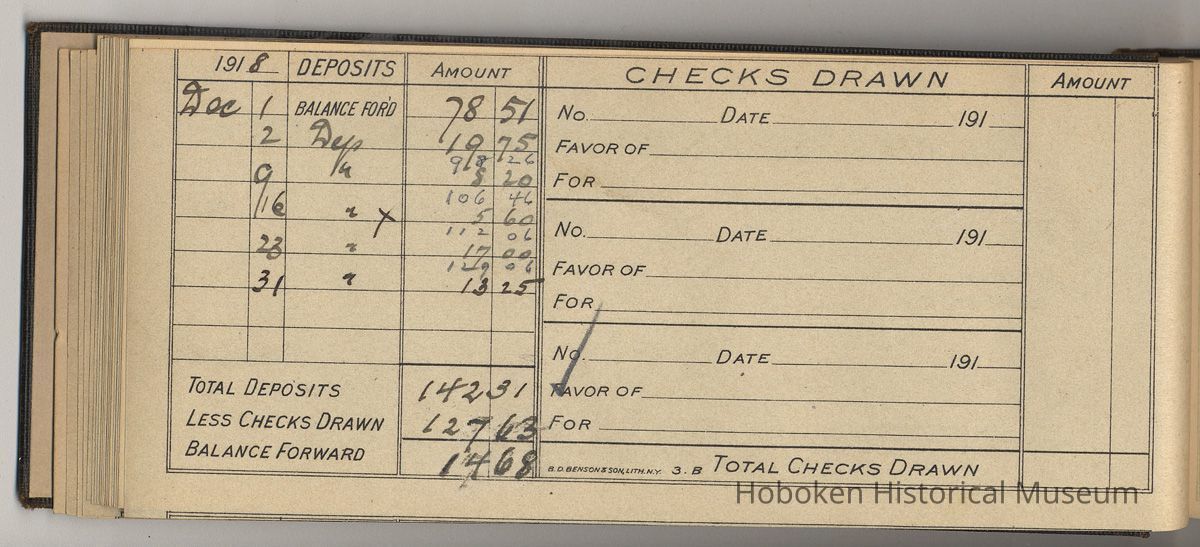 1918 DEPOSITS AMOUNT CHECKS DRAWN AMOUNT
Dec 1 BALANCE FOR'D 78 51
2 Dep 19 75
98 26
9 " 8 20
106 46
16 " X 5 60
112 06
23 " 17 00
129 06
31 " 13 25
TOTAL DEPOSITS 142 31
LESS CHECKS DRAWN 127 63
BALANCE FORWARD 14 68
No. DATE 191
FAVOR OF
FOR
No. DATE 191
FAVOR OF
FOR
No. DATE 191
FAVOR OF
FOR
B.D. BENSON & SON, LITH. N.Y. 3. B TOTAL CHECKS DRAWN
Hoboken Historical Museum